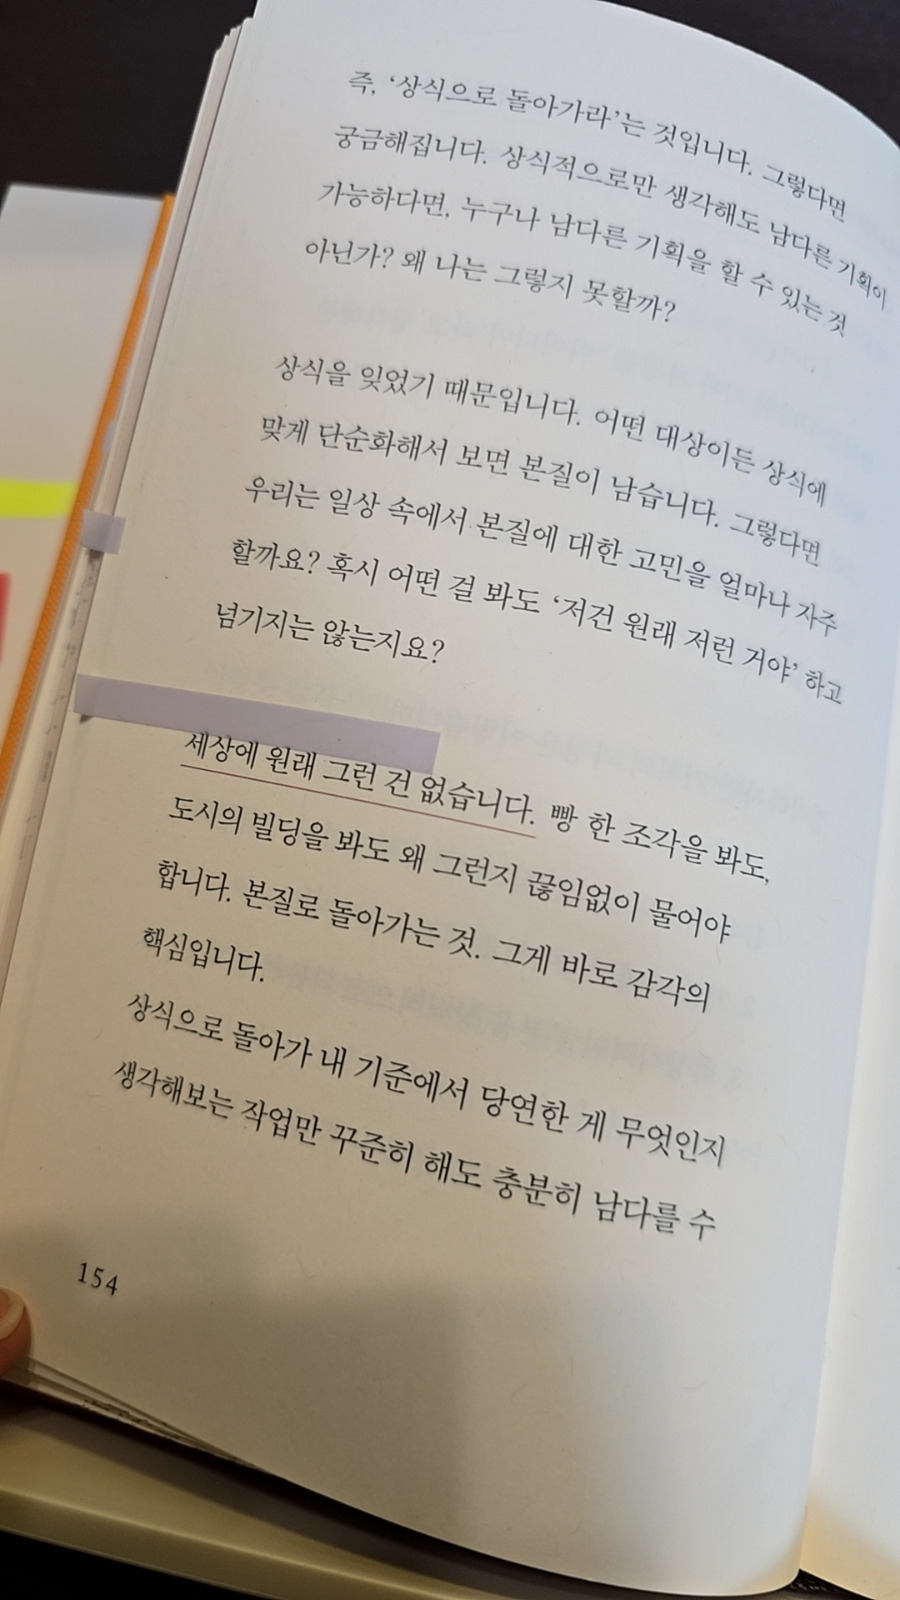 즉, ‘상식으로 돌아가라’는 것입니다. 그렇다면
궁금해집니다. 상식적으로만 생각해도 남다른 기획이
가능하다면, 누구나 남다른 기획을 할 수 있는 것
아닌가? 왜 나는 그렇지 못할까?
상식을 잊었기 때문입니다. 어떤 대상이든 상식에
맞게 단순화해서 보면 본질이 남습니다. 그렇다면
우리는 일상 속에서 본질에 대한 고민을 얼마나 자주
할까요? 혹시 어떤 걸 봐도 ‘저건 원래 저런 거야’ 하고
넘기지는 않는지요?
세상에 원래 그런 건 없습니다. 빵 한 조각을 봐도,
도시의 빌딩을 봐도 왜 그런지 끊임없이 물어야
합니다. 본질로 돌아가는 것. 그게 바로 감각의
핵심입니다.
상식으로 돌아가 내 기준에서 당연한 게 무엇인지
생각해보는 작업만 꾸준히 해도 충분히 남다를 수
154